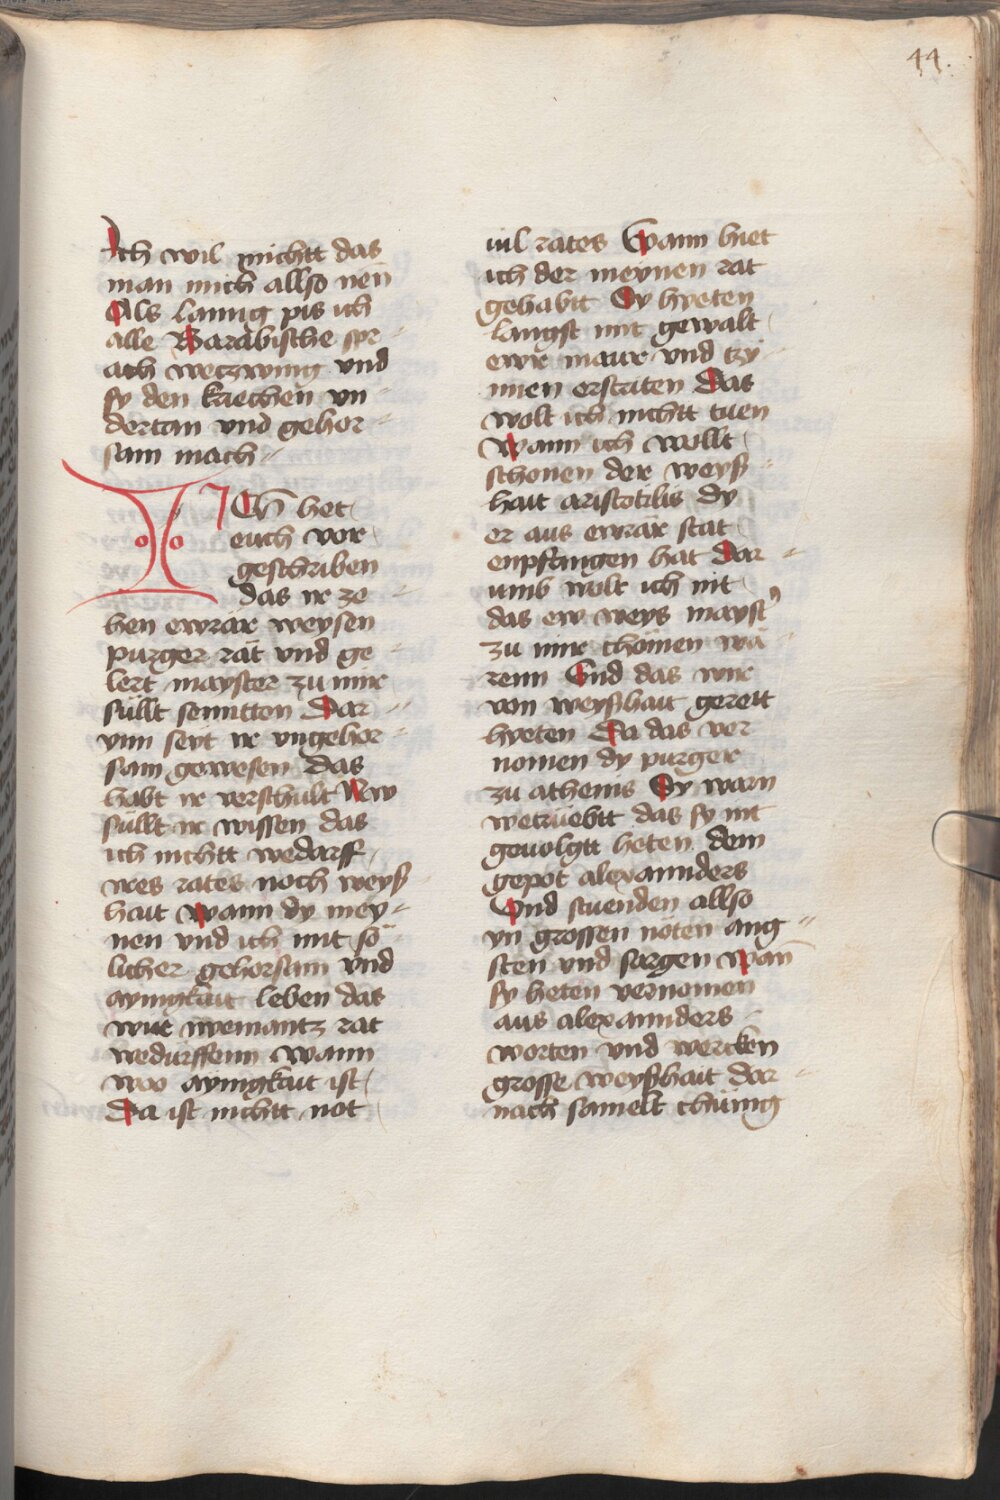 44.
Ich wil nichtt das
man mich allso nen̄
Als lanng pis ich
alle Barabische spr
ach weczwing vnd
sy den kriechen vn
dertan vnd gehor
sam mach
I ICh het
euch vor
geschriben
das ir ze
hen ewrär weysen
purger rät vnd ge
lert mayster zu mir
süllt senntten Dar
vmb seyt ir vngehor
sam gewesen Das
habt ir verschult Nw
süllt ir wissen das
ich nichtt wedarff
wes rates noch weyß
hait wann dy mey
nen vnd ich mit sö
licher gehorsam vnd
aynigkait leben das
wir nyemantz rat
wedürffenn wann
woo aynigkait ist
Da ist nichtt not
vil rates Wann hiet
ich der meynen rat
gehabt Sy hyeten
langst mit gewalt
ewr maur vnd tzy
nnen erstiten Das
wolt ich nichtt tuen
Wann ich wollt
schonen der weyß
hait aristotilis dy
er aus ewrär stat
enpfangen hat Dar
umb wolt ich nit
das ew weys mayst
zu mir chömen wä
renn Vnd das wir
von weyßhait geredt
hyeten Da das ver
nomen dy purger
zu athenis Sy warn
wetrüebtt das sy nit
geuolgtt heten dem
gepot alexannders
Vnd stuenden allso
yn grossen nöten ang
sten vnd sorgen wan̄
sy heten vernomen
aus alexannders
worten vnd wercken
grosse weyßhait dar
nach samelt chünig